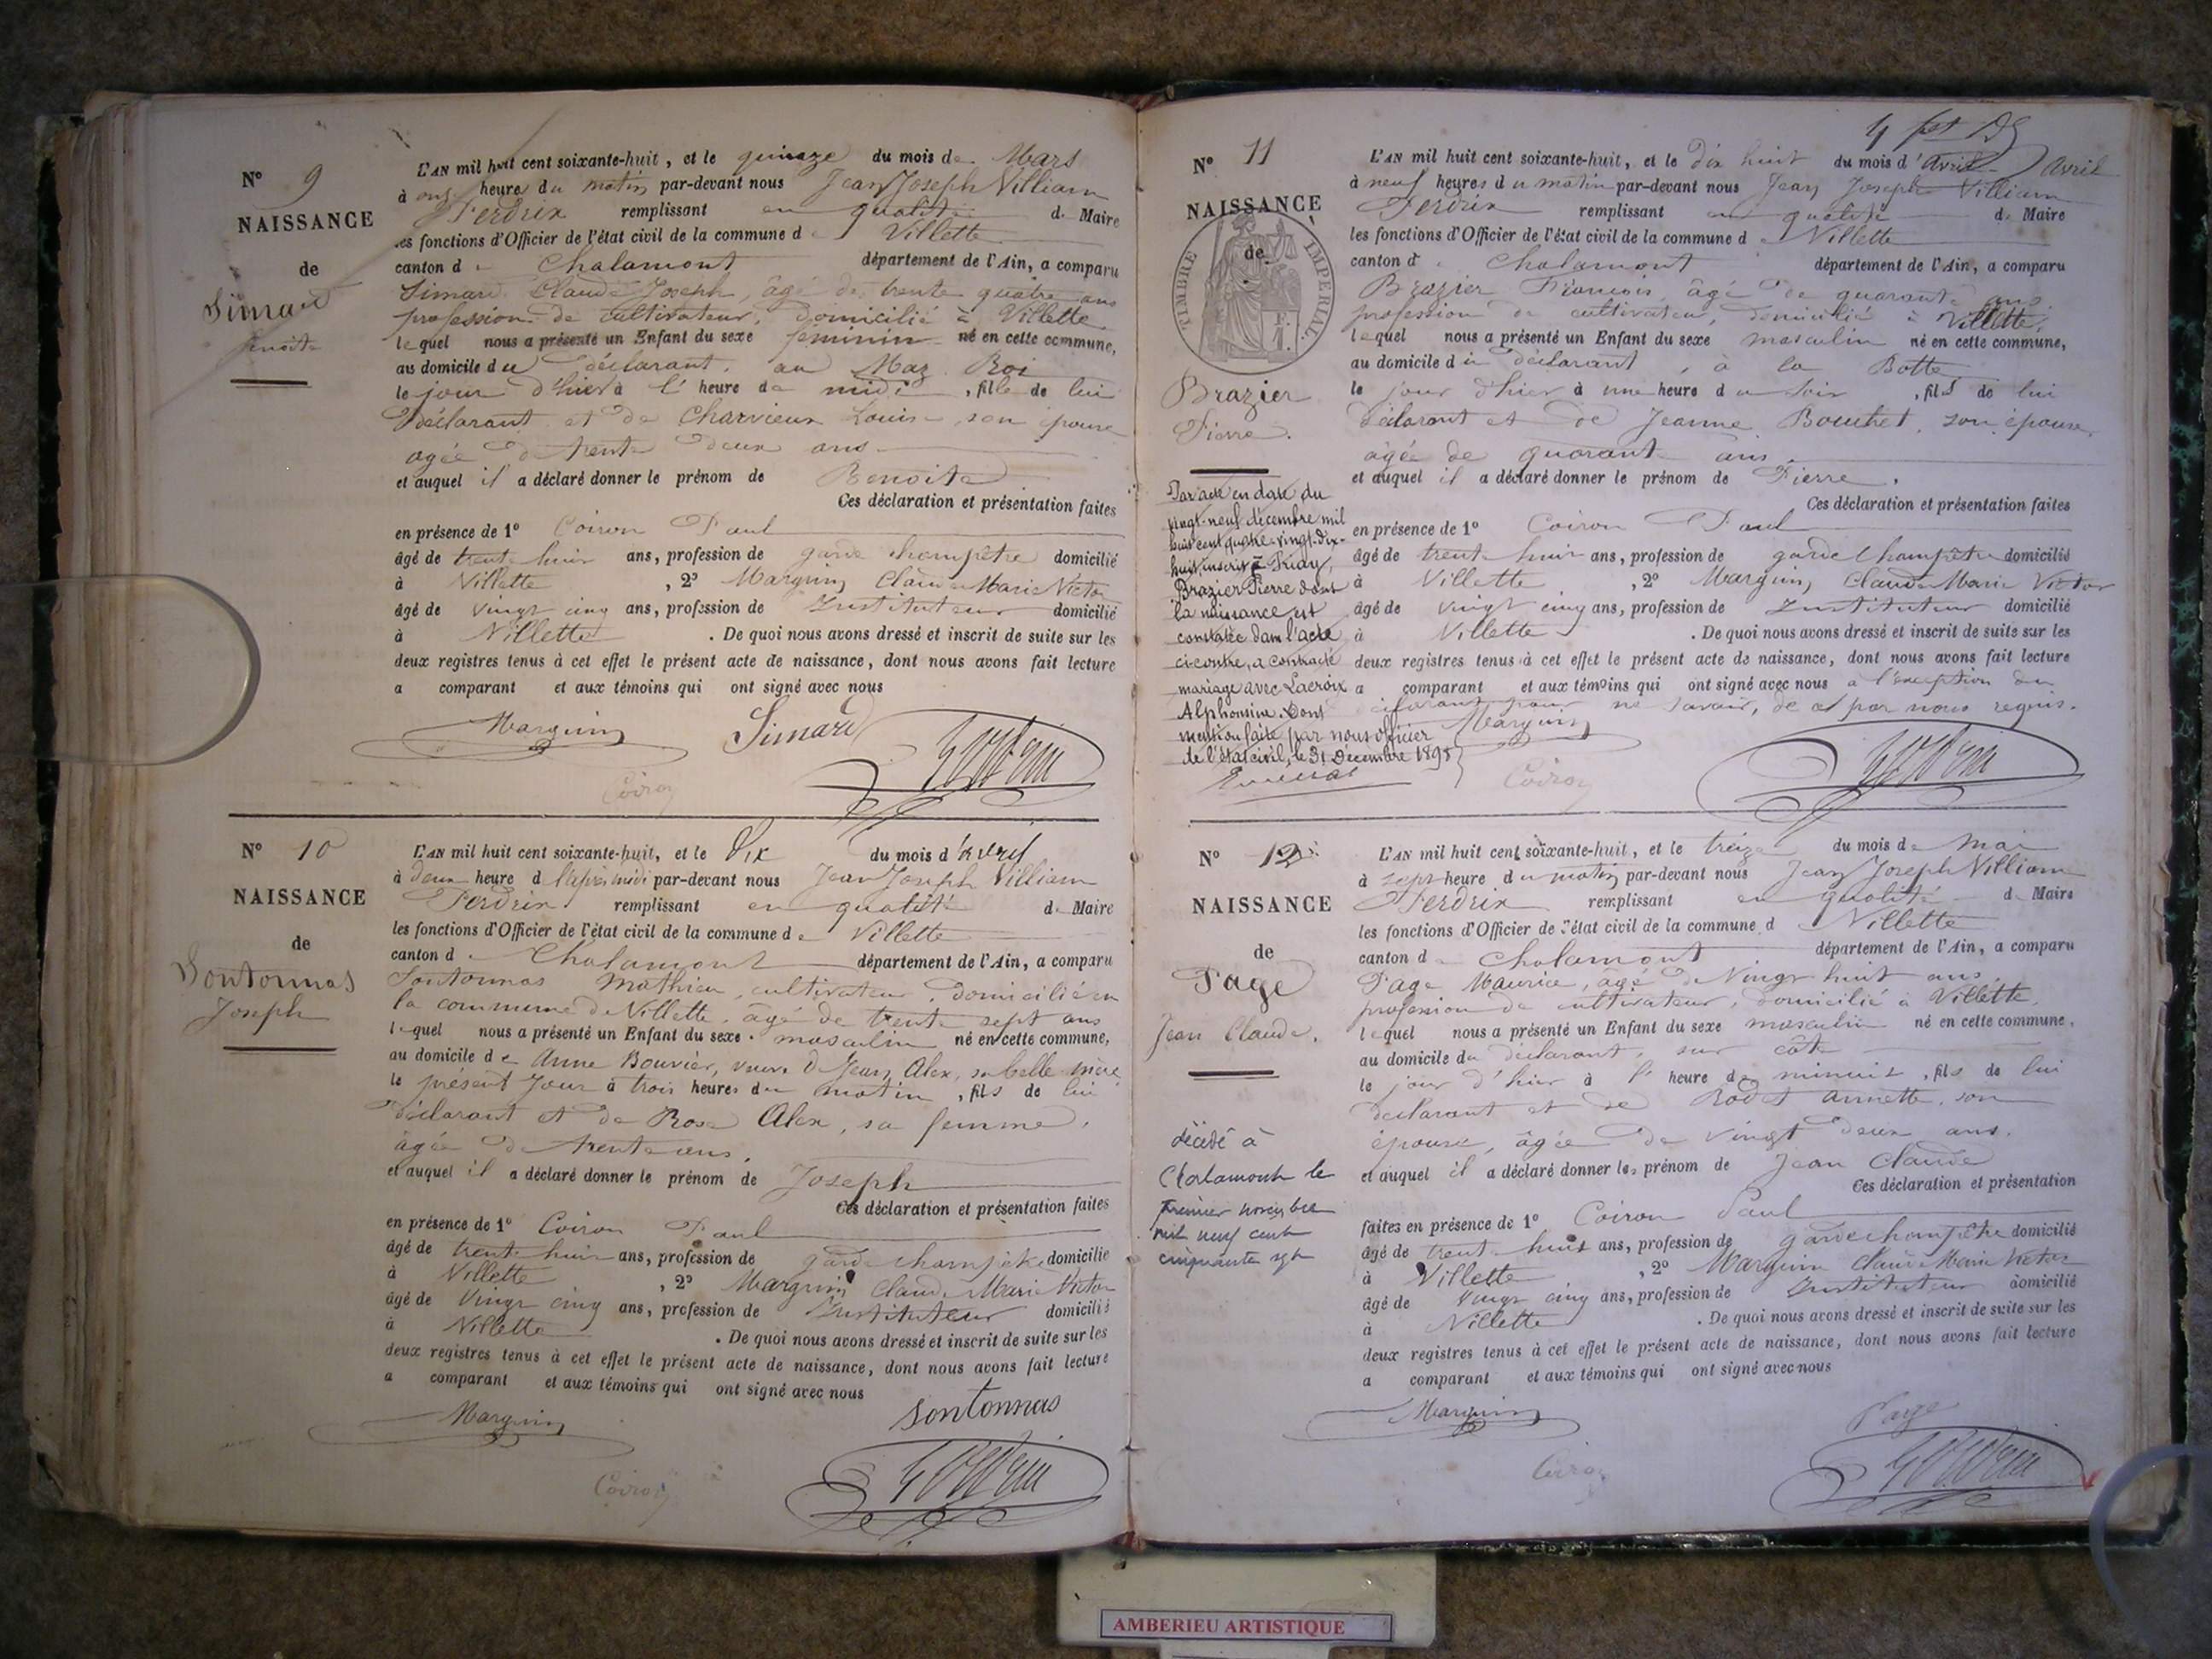 N° 9
NAISSANCE
de
Simard
Benoite
L'AN mil huit cent soixante-huit, et le quinze du mois de Mars
à onze heures du matin par-devant nous Jean Joseph Villiam
Perdrix remplissant en qualité de Maire
les fonctions d'Officier de l'état civil de la commune de Villette
canton de Chalamont département de l'Ain, a comparu
Simard Claude Joseph, âgé de trente quatre ans
profession de cultivateur, domicilié à Villette
lequel nous a présenté un Enfant du sexe féminin né en cette commune,
au domicile du déclarant, au Maz Roi
le jour d'hier à l' heure de midi, fille de lui
déclarant et de Charvieux Louise, son épouse
agée de trente deux ans
et auquel il a déclaré donner le prénom de Benoite
Ces déclaration et présentation faites
en présence de 1° Coiron Paul
âgé de trente huit ans, profession de garde champêtre domicilié
à Villette, 2° Marguin Claude Marie Victor
âgé de vingt cinq ans, profession de Instituteur domicilié
à Villette. De quoi nous avons dressé et inscrit de suite sur les
deux registres tenus à cet effet le présent acte de naissance, dont nous avons fait lecture
a comparant et aux témoins qui ont signé avec nous
Marguin Simard
Coiron
N° 10
NAISSANCE
de
Sontonnas
Joseph
L'AN mil huit cent soixante-huit, et le Dix du mois d'avril
à deux heure d l'après midi par-devant nous Jean Joseph Villiam
Perdrix remplissant en qualité de Maire
les fonctions d'Officier de l'état civil de la commune de Villette
canton de Chalamont département de l'Ain, a comparu
Sontonnas Mathieu, cultivateur, domicilié en
la commune de Villette, âgé de trente sept ans
lequel nous a présenté un Enfant du sexe masculin né en cette commune,
au domicile de Anne Bouvier, veuve de Jean Alex, sa belle mère
le présent jour à trois heures du matin, fils de lui
déclarant et de Rose Alex, sa femme,
âgée de trente ans.
et auquel il a déclaré donner le prénom de Joseph
Ces déclaration et présentation faites
en présence de 1° Coiron Paul
âgé de trente huit ans, profession de garde champêtre domicilié
à Villette, 2° Marguin Claude Marie Victor
âgé de Vingt cinq ans, profession de Instituteur domicilié
à Villette. De quoi nous avons dressé et inscrit de suite sur les
deux registres tenus à cet effet le présent acte de naissance, dont nous avons fait lecture
a comparant et aux témoins qui ont signé avec nous
Marguin Sontonnas
Coiron
N° 11
NAISSANCE
de
TIMBRE IMPERIAL
Brazier
Pierre.
L'AN mil huit cent soixante-huit, et le dix huit du mois d'avril avril
à neuf heures du matin par-devant nous Jean Joseph Villiam
Perdrix remplissant en qualité de Maire
les fonctions d'Officier de l'état civil de la commune de Villette
canton de Chalamont département de l'Ain, a comparu
Brazier François âgé de quarante ans
profession de cultivateur, domicilié à Villette,
lequel nous a présenté un Enfant du sexe masculin né en cette commune,
au domicile du déclarant, à la Botte
le jour d'hier à une heure du soir, fils de lui
déclarant et de Jeanne Bouchet, son épouse,
âgée de quarante ans
et auquel il a déclaré donner le prénom de Pierre.
Ces déclaration et présentation faites
en présence de 1° Coiron Paul
âgé de trente huit ans, profession de garde champêtre domicilié
à Villette, 2° Marguin Claude Marie Victor
âgé de vingt cinq ans, profession de Instituteur domicilié
à Villette. De quoi nous avons dressé et inscrit de suite sur les
deux registres tenus à cet effet le présent acte de naissance, dont nous avons fait lecture
a comparant et aux témoins qui ont signé avec nous à l'exception du
déclarant pour ne savoir, de ce par nous requis.
Marguin
Coiron
Par acte en date du
vingt-neuf décembre mil
huit cent quatre-vingt-dix-
huit, inscrit à Priay,
Brazier Pierre dont
la naissance est
constatée dans l'acte
ci-contre, a contracté
mariage avec Lacroix
Alphonsine. Dont
mention faite par nous officier
de l'état civil, le 31 Décembre 1898
N° 12
NAISSANCE
de
Page
Jean Claude.
L'AN mil huit cent soixante-huit, et le treize du mois de mai
à sept heure du matin par-devant nous Jean Joseph Villiam
Perdrix remplissant en qualité de Maire
les fonctions d'Officier de l'état civil de la commune d Villette
canton de Chalamont département de l'Ain, a comparu
Page Maurice, âgé de Vingt huit ans
profession de cultivateur, domicilié à Villette,
lequel nous a présenté un Enfant du sexe masculin né en cette commune,
au domicile du déclarant, sur côte
le jour d'hier à l' heure de minuit, fils de lui
déclarant et de Rodet Annette, son
épouse, âgée de vingt deux ans.
et auquel il a déclaré donner les prénom de Jean Claude
Ces déclaration et présentation
faites en présence de 1° Coiron Paul
âgé de trente huit ans, profession de garde champêtre domicilié
à Villette, 2° Marguin Claude Marie Victor
âgé de Vingt cinq ans, profession de Instituteur domicilié
à Villette. De quoi nous avons dressé et inscrit de suite sur les
deux registres tenus à cet effet le présent acte de naissance, dont nous avons fait lecture
a comparant et aux témoins qui ont signé avec nous
Marguin Page
Coiron
décédé à
Chalamont le
premier novembre
mil neuf cent
cinquante sept
AMBERIEU ARTISTIQUE